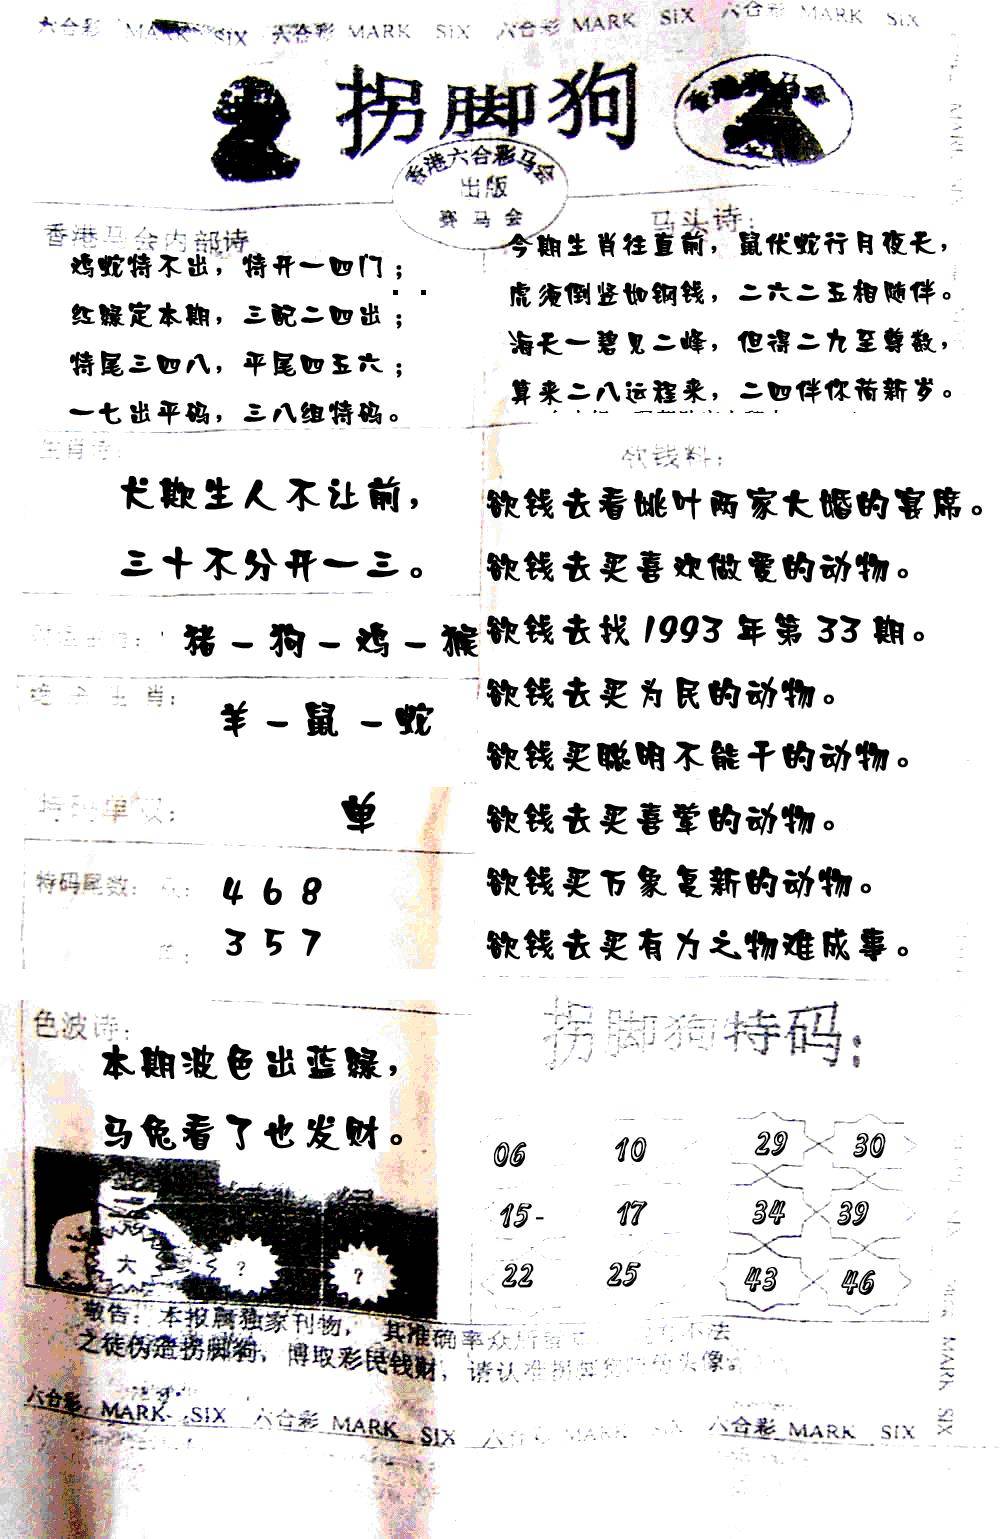 六合彩 MARK SIX 六合彩 MARK SIX 六合彩 MARK SIX 六合彩 MARK SIX
拐脚狗
香港六合彩马会
出版
赛马会
香港马会内部诗
鸡蛇特不出，特开一四门；
红绿定本期，三配二四出；
特尾三四八，平尾四五六；
一七出平码，三八组特码。
马头诗：
今期生肖往直前，鼠伏蛇行月夜天，
虎须倒竖如钢钱，二六二五相随伴。
海天一碧见二峰，但得二九至尊数，
算来二八运程来，二四伴你荷新岁。
生肖诗：
犬欺生人不让前，
三十不分开一三。
猪－狗－鸡－猴
绝杀生肖：
羊－鼠－蛇
特码单双：
单
特码尾数：
4 6 8
3 5 7
欲钱料：
欲钱去看姚叶两家大婚的宴席。
欲钱去买喜欢做爱的动物。
欲钱去找1993年第33期。
欲钱去买为民的动物。
欲钱买聪明不能干的动物。
欲钱去买喜荤的动物。
欲钱买万象复新的动物。
欲钱去买有力之物难成事。
色波诗：
本期波色出蓝绿，
马兔看了也发财。
大 ? ?
拐脚狗特码：
06 10 29 30
15- 17 34 39
22 25 43 46
敬告：本报属独家刊物，其准确率众所 不法
之徒伪造拐脚狗，博取彩民钱财，请认准拐脚狗 头像。
六合彩 MARK SIX 六合彩 MARK SIX 六合彩 MARK SIX 六合彩 MARK SIX
MARK SIX